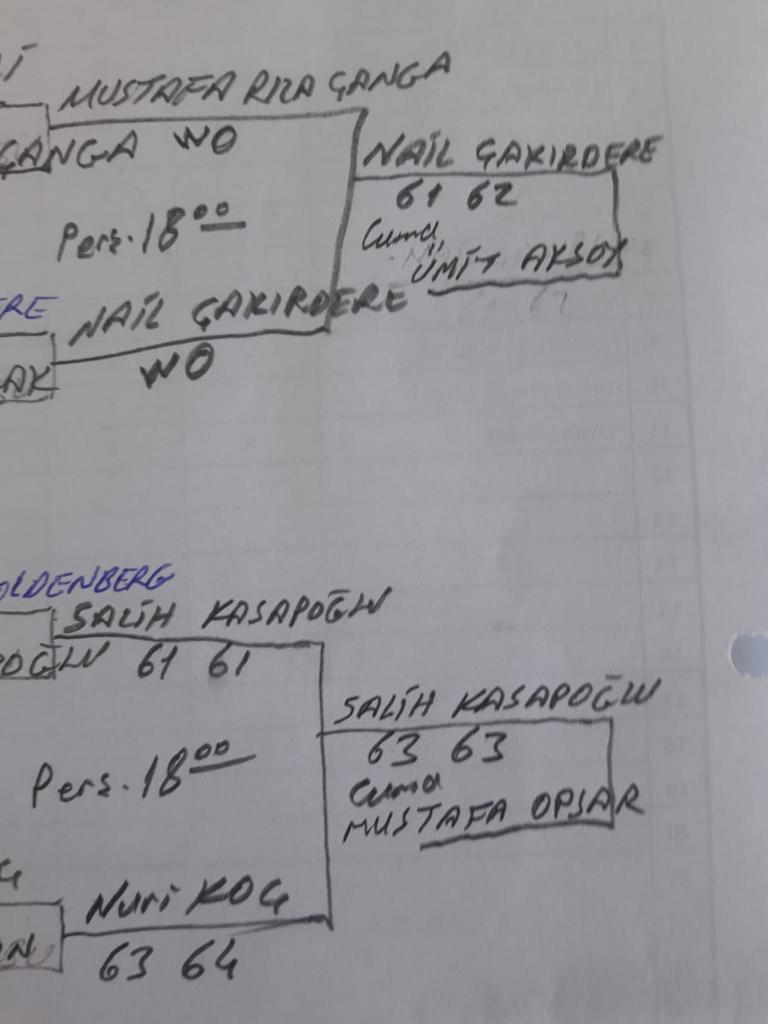 MUSTAFA RIZA ÇANGA
ÇANGA WO
NAİL ÇAKIRDERE
61 62
Pers. 18⁰⁰
Cuma
ÜMİT AKSOY
ERE
NAİL ÇAKIRDERE
AK
WO
OLDENBERG
SALİH KASAPOĞLU
POĞLU 61 61
SALİH KASAPOĞLU
63 63
Pers. 18⁰⁰
Cuma
MUSTAFA OPSAR
Nuri KOÇ
63 64